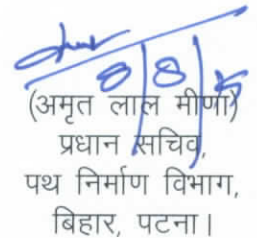 8/8/
(अमृत लाल मीणा)
प्रधान सचिव,
पथ निर्माण विभाग,
बिहार, पटना।